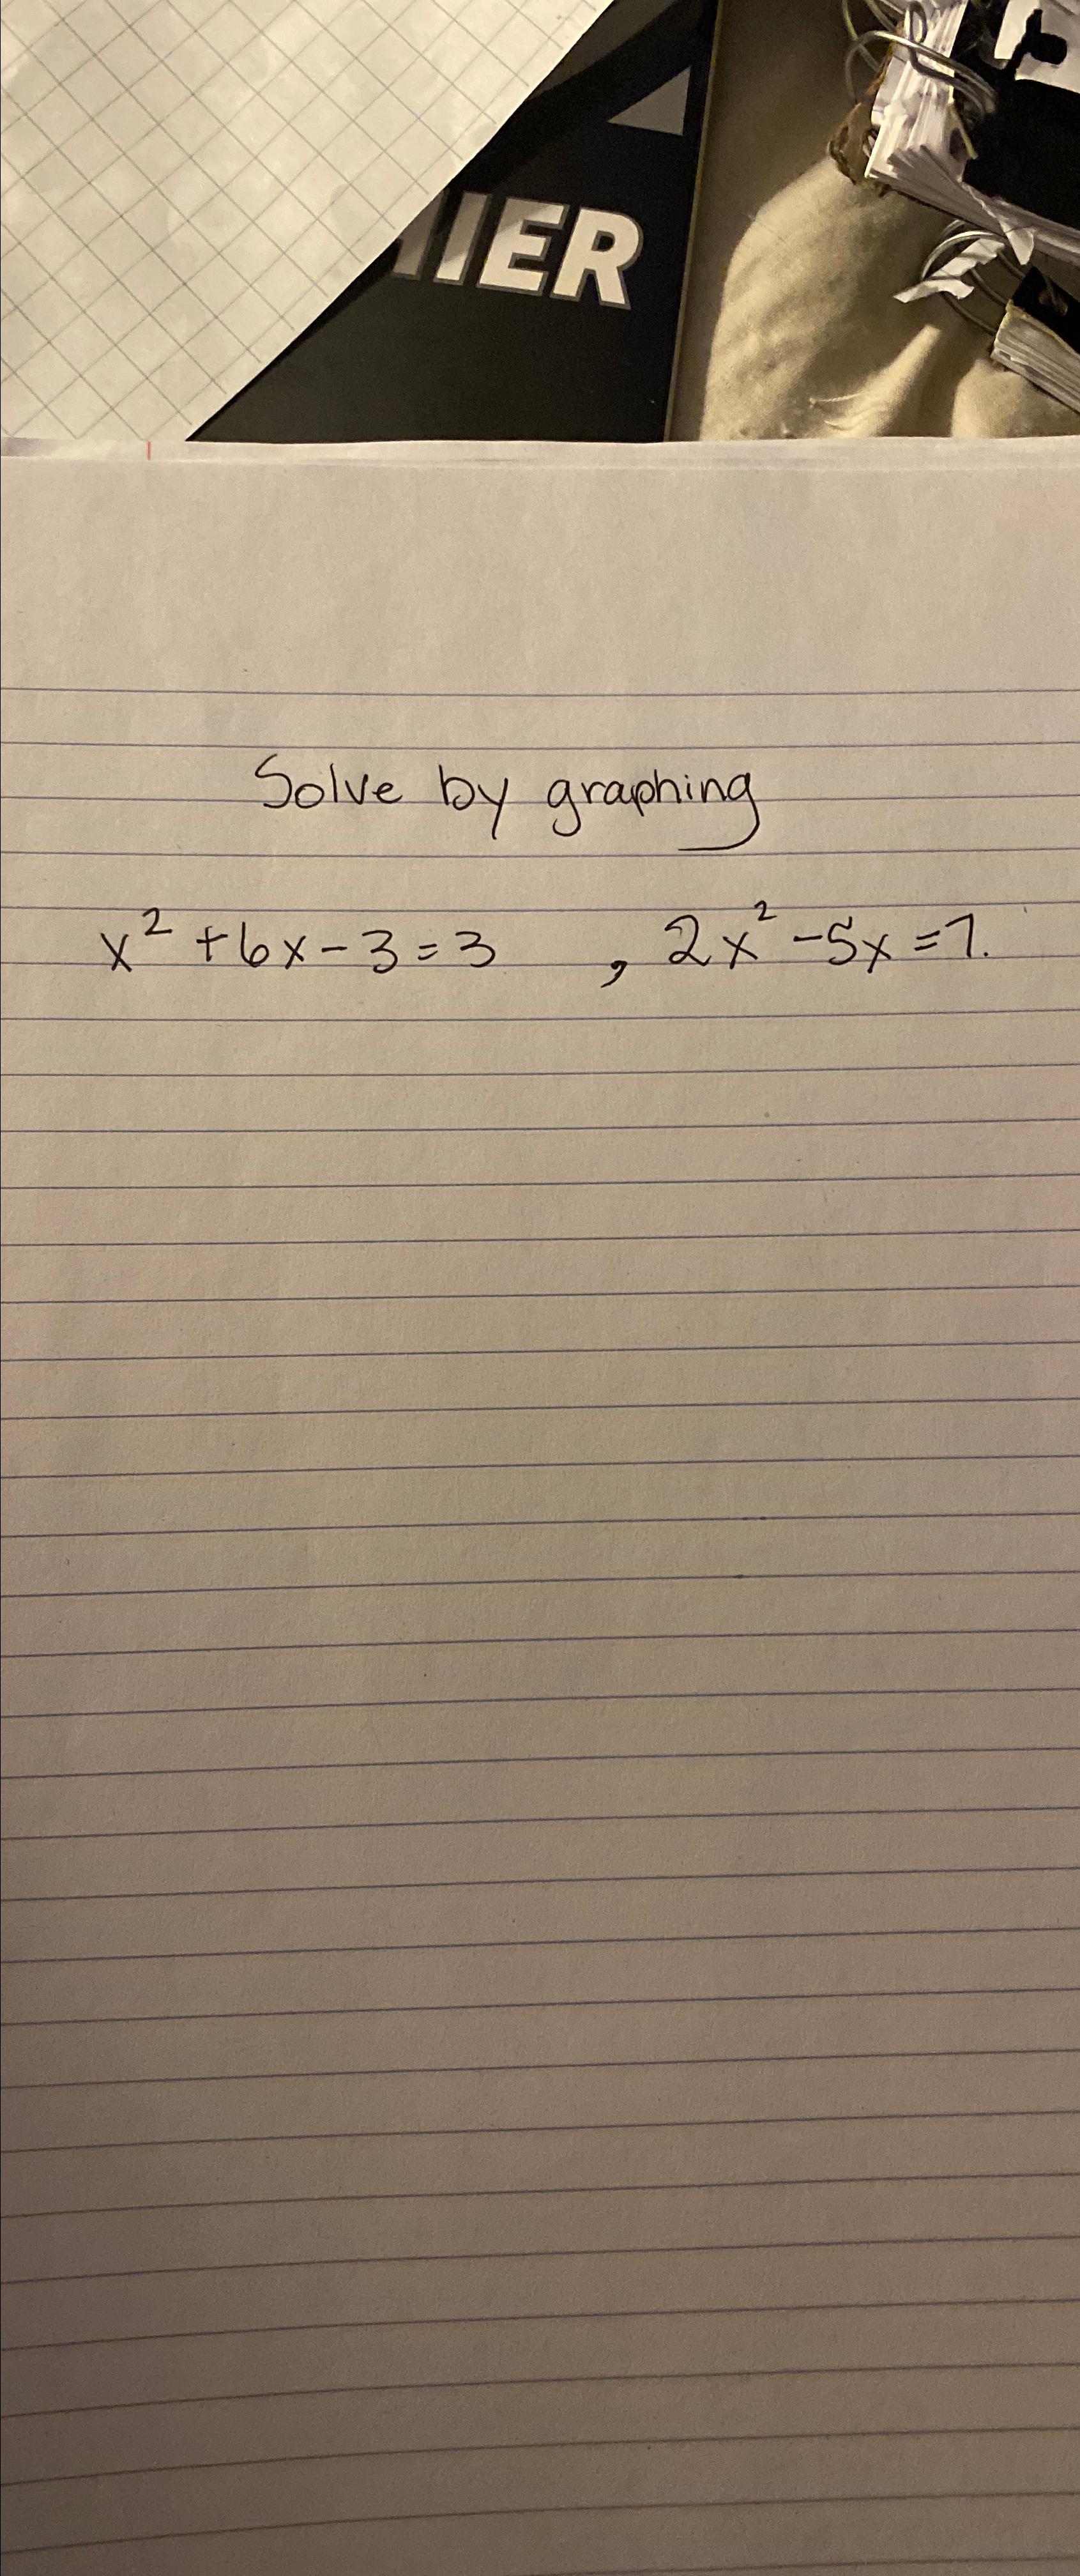 IER
Solve by graphing
x² + 6x - 3 = 3 , 2x² - 5x = 7.